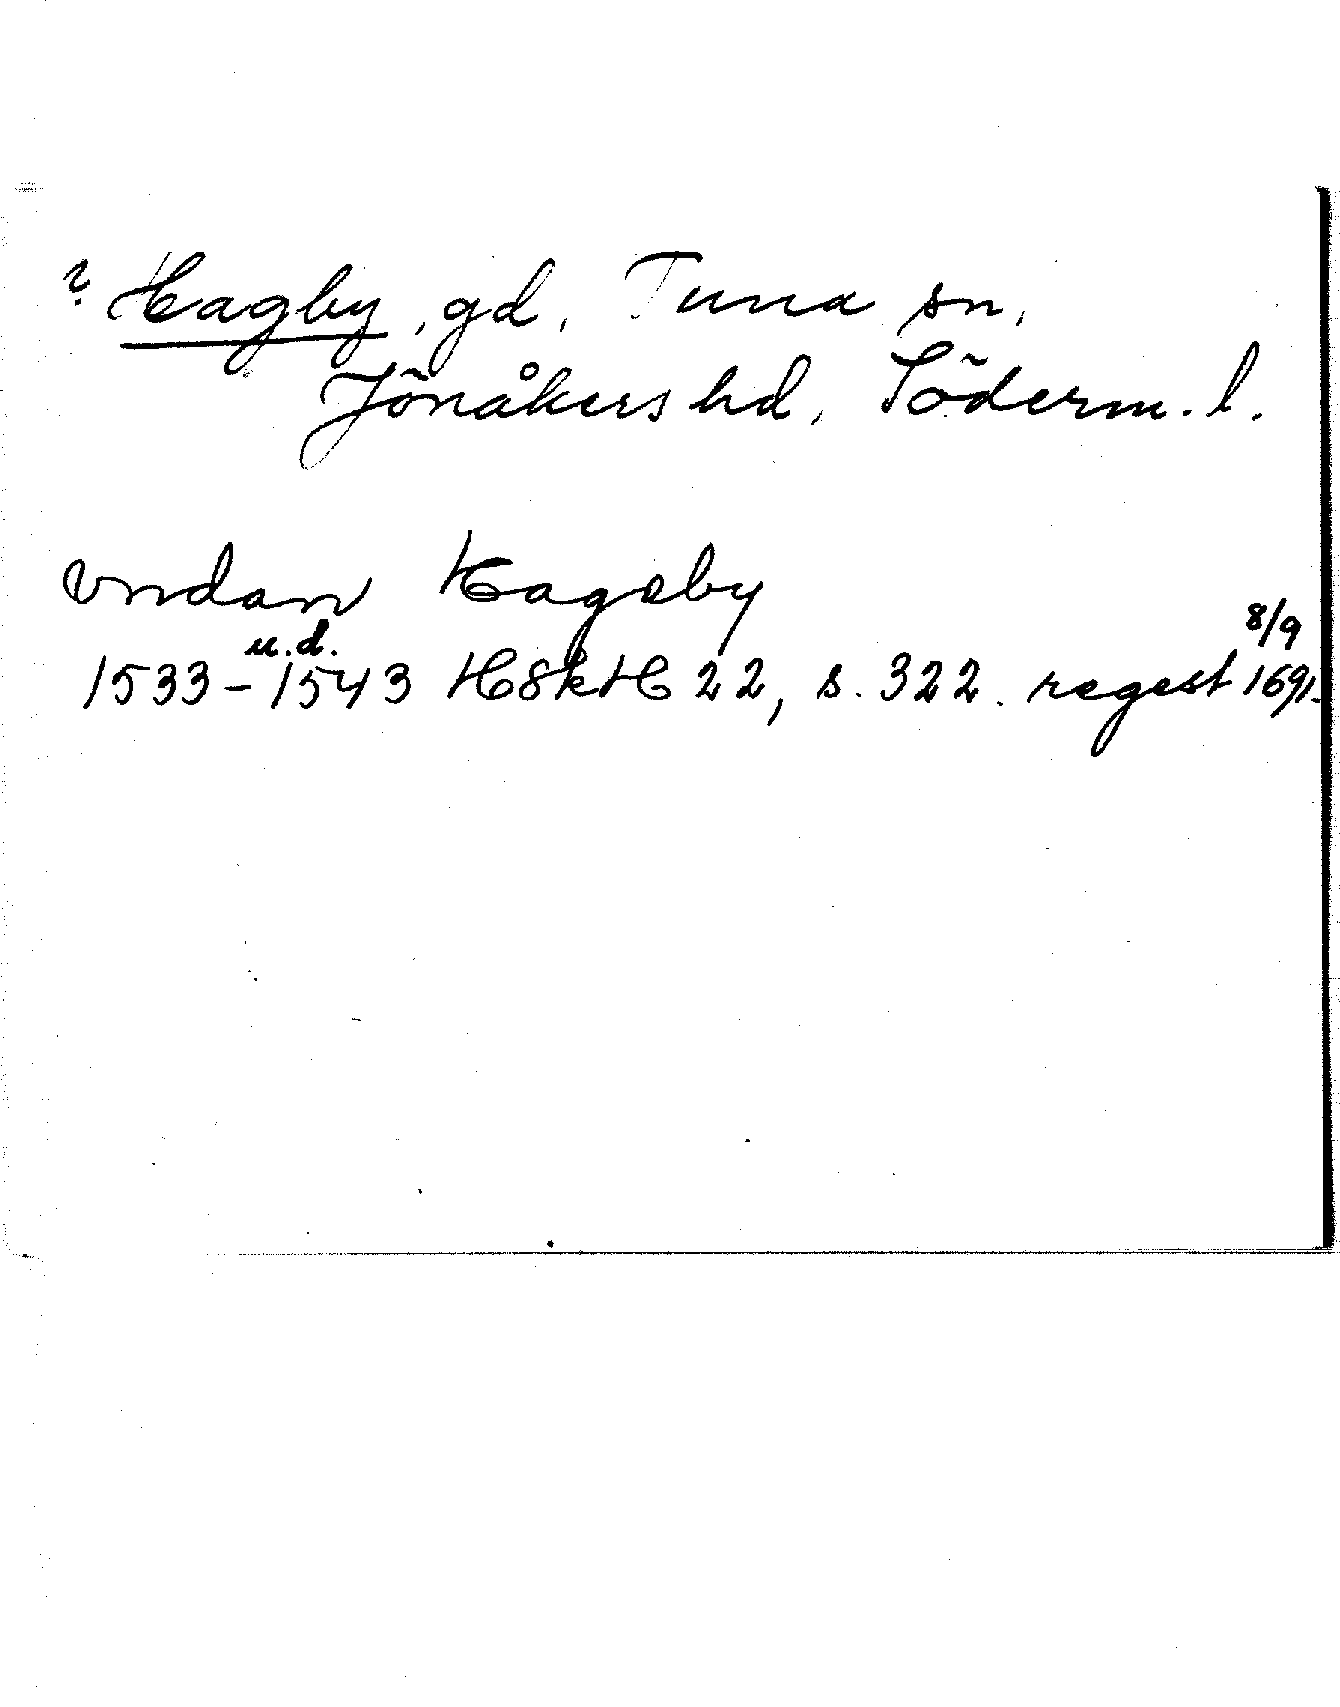 ? Hagby, gd, Tuna sn,
Jönåkers hd, Söderm. l.
vndan Hagaby
u.d. 8/9
1533–1543 HSkH 22, s. 322. regest 1691.